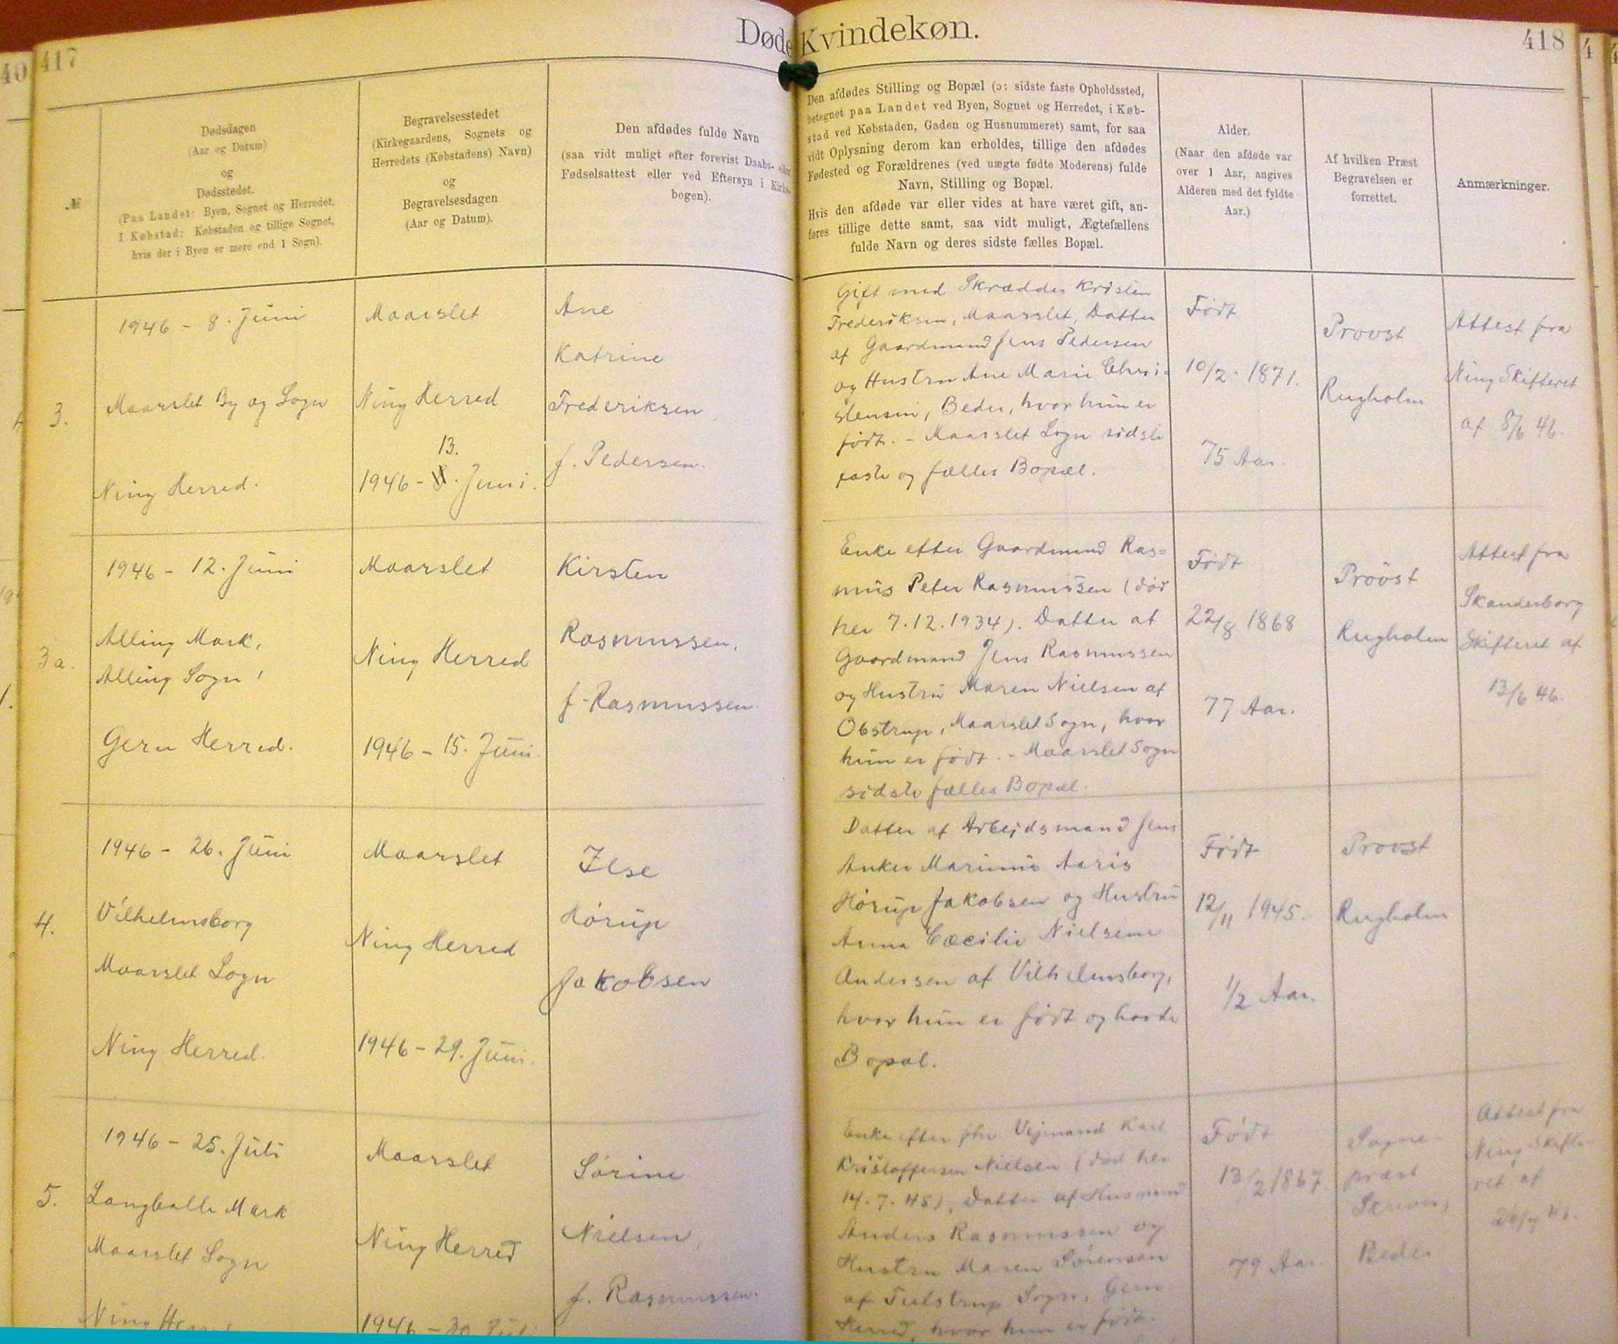 417
Døde Kvindekøn.
418
№
Dødsdagen
(Aar og Datum)
og
Dødsstedet.
(Paa Landet: Byen, Sognet og Herredet.
I Købstad: Købstaden og tillige Sognet,
hvis der i Byen er mere end 1 Sogn).
Begravelsesstedet
(Kirkegaardens, Sognets og
Herredets (Købstadens) Navn)
og
Begravelsesdagen
(Aar og Datum).
Den afdødes fulde Navn
(saa vidt muligt efter forevist Daabs- eller
Fødselsattest eller ved Eftersyn i Kirke-
bogen).
Den afdødes Stilling og Bopæl (ɔ: sidste faste Opholdssted,
betegnet paa Landet ved Byen, Sognet og Herredet, i Køb-
stad ved Købstaden, Gaden og Husnummeret) samt, for saa
vidt Oplysning derom kan erholdes, tillige den afdødes
Fødested og Forældrenes (ved uægte fødte Moderens) fulde
Navn, Stilling og Bopæl.
Hvis den afdøde var eller vides at have været gift, an-
føres tillige dette samt, saa vidt muligt, Ægtefællens
fulde Navn og deres sidste fælles Bopæl.
Alder.
(Naar den afdøde var
over 1 Aar, angives
Alderen med det fyldte
Aar.)
Af hvilken Præst
Begravelsen er
forrettet.
Anmærkninger.
3.
1946 - 8. Juni
Maarslet By og Sogn
Ning Herred.
Maarslet
Ning Herred
13.
1946 - 8. Juni.
Ane
Katrine
Frederiksen
f. Pedersen.
Gift med Skrædder Kristen
Frederiksen, Maarslet, Datter
af Gaardmand Jens Pedersen
og Hustru Ane Marie Chri-
stensen, Beder, hvor hun er
født. - Maarslet Sogn sidste
faste og fælles Bopæl.
Født
10/2 - 1871.
75 Aar.
Provst
Rugholm
Attest fra
Ning Skifteret
af 8/6 46.
3a.
1946 - 12. Juni
Alling Mark,
Alling Sogn,
Gern Herred.
Maarslet
Ning Herred
1946 - 15. Juni.
Kirsten
Rasmussen,
f. Rasmussen.
Enke efter Gaardmand Ras-
mus Peter Rasmussen (død
her 7.12.1934). Datter af
Gaardmand Jens Rasmussen
og Hustru Maren Nielsen af
Obstrup, Maarslet Sogn, hvor
hun er født. - Maarslet Sogn
sidste fælles Bopæl.
Født
22/8 1868
77 Aar.
Provst
Rugholm
Attest fra
Skanderborg
Skifteret af
13/6 46.
4.
1946 - 26. Juni
Vilhelmsborg
Maarslet Sogn
Ning Herred.
Maarslet
Ning Herred
1946 - 29. Juni.
Ilse
Hørup
Jakobsen
Datter af Arbejdsmand Jens
Anker Marinus Aaris
Hørup Jakobsen og Hustru
Anna Cæcilie Nielsine
Andersen af Vilhelmsborg,
hvor hun er født og havde
Bopæl.
Født
12/11 1945.
1/2 Aar.
Provst
Rugholm
5.
1946 - 25. Juli
Langballe Mark
Maarslet Sogn
Ning
Maarslet
Ning Herred
1946 - 30. Juli
Sørine
Nielsen,
f. Rasmussen.
Enke efter fhv. Vejmand Karl
Kristoffersen Nielsen (død her
14.7.45), Datter af Husmand
Anders Rasmussen og
Hustru Maren Sørensen
af Tulstrup Sogn, Gern
Herred, hvor hun er født.
Født
13/2 1867.
79 Aar.
Sogne-
præst
Beder
Attest fra
Ning Skifte-
ret af